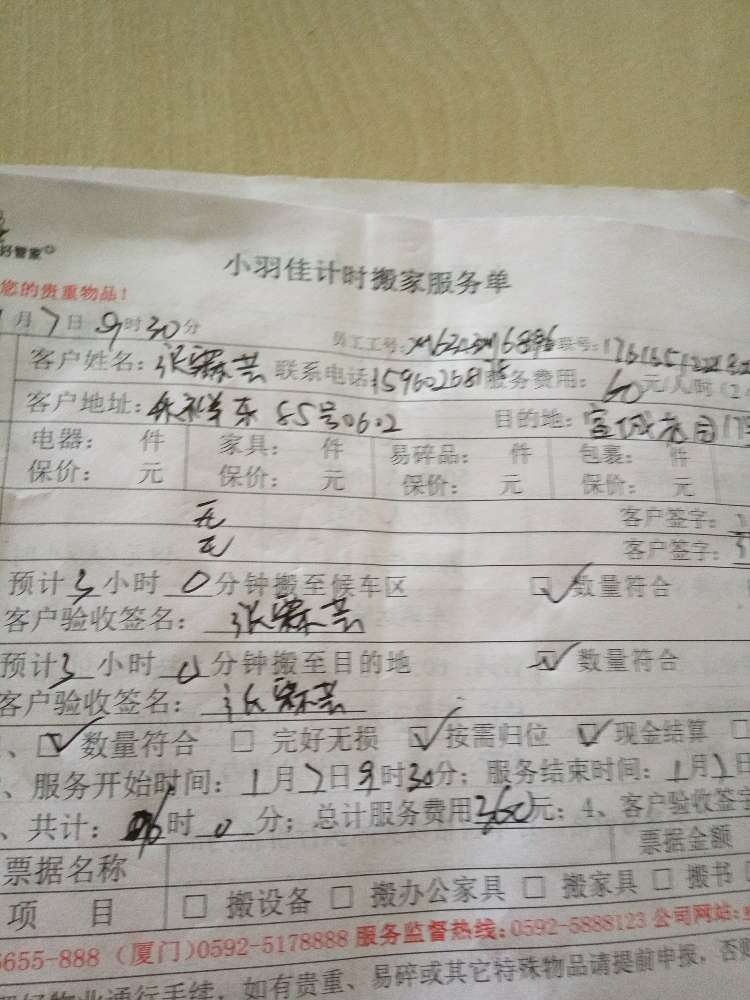 好管家
小羽佳计时搬家服务单
您的贵重物品!
月7日9时30分 员工工号: 联号:
客户姓名:张霖芸 联系电话: 服务费用:60元/人/时
客户地址: 东85号0602 目的地: 花园
电器: 件 家具: 件 易碎品: 件 包裹: 件
保价: 元 保价: 元 保价: 元 保价: 元
无 客户签字:
无 客户签字:
预计3小时0分钟搬至候车区 数量符合
客户验收签名:张霖芸
预计3小时0分钟搬至目的地 数量符合
客户验收签名:张霖芸
、数量符合 完好无损 按需归位 现金结算
、服务开始时间:1月7日9时30分;服务结束时间:1月7日
、共计:6时0分;总计服务费用360元;4、客户验收签字
票据名称 票据金额
项目 搬设备 搬办公家具 搬家具 搬书
5655-888 (厦门)0592-5178888 服务监督热线:0592-5888123 公司网站:
物业通行手续,如有贵重、易碎或其它特殊物品请提前申报,否则